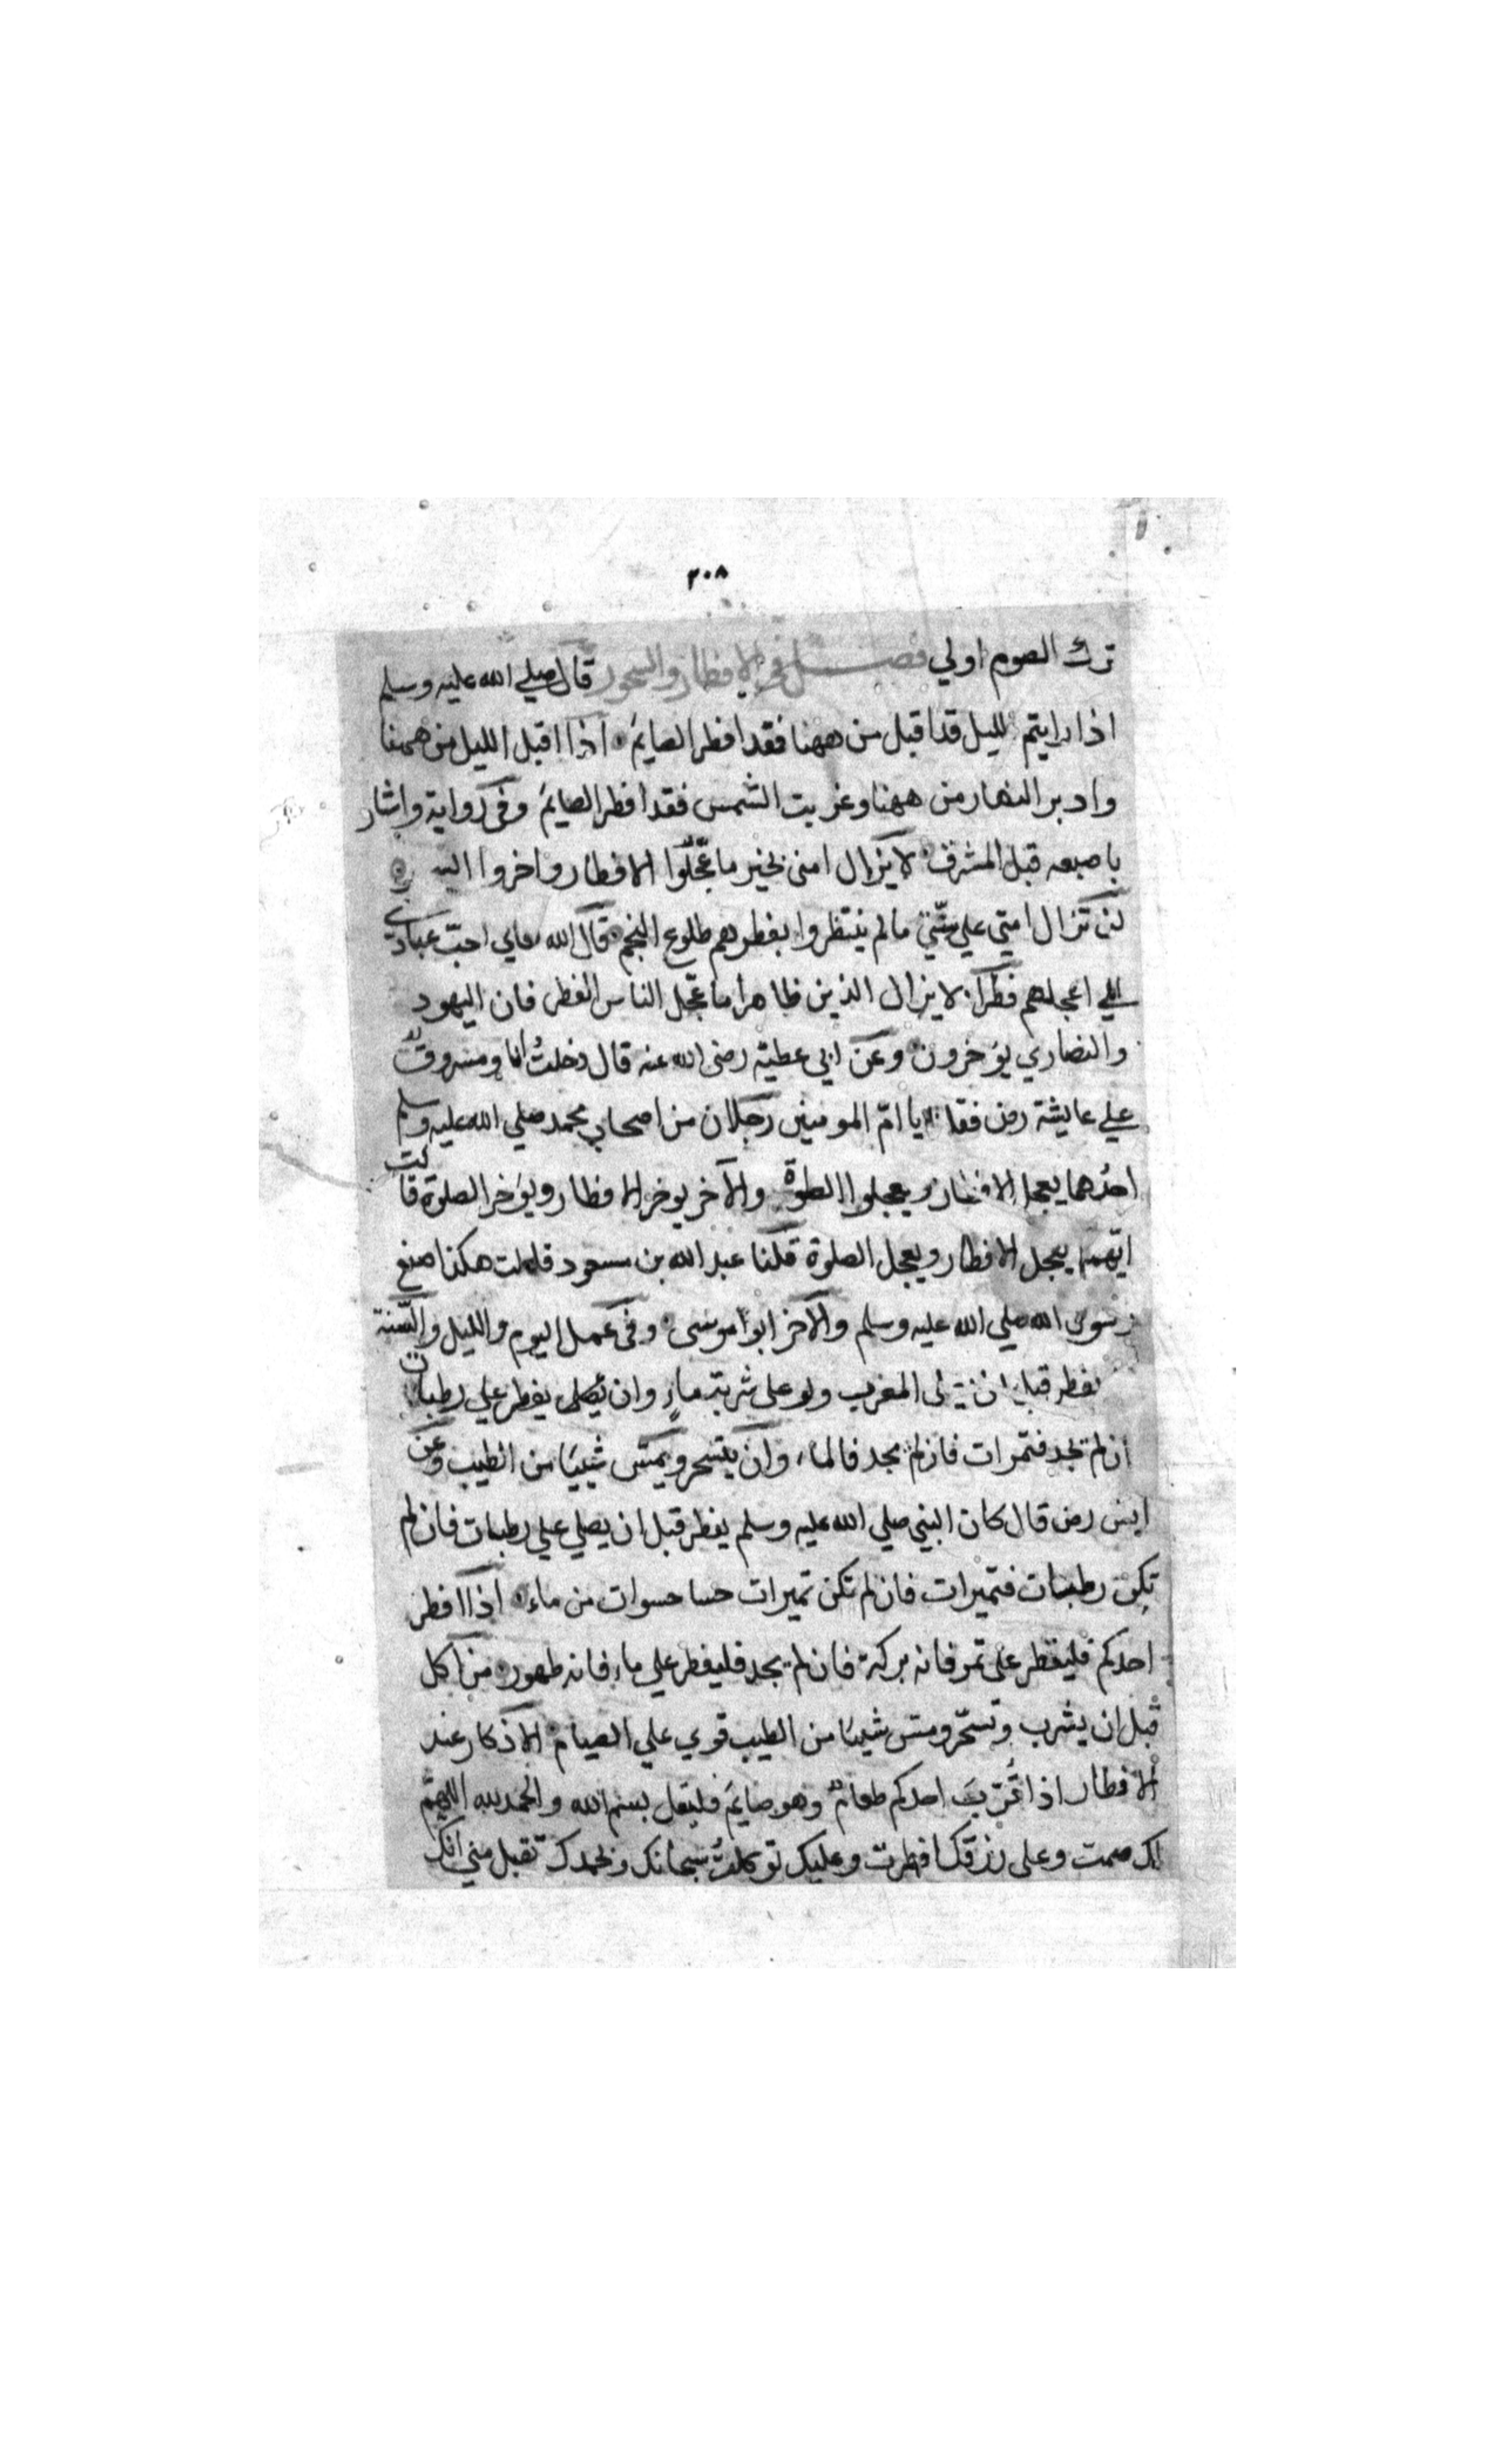 ٢٠٨
ترك الصوم اولي فصل في الافطار والسحور قال صلي الله عليه وسلم
اذا رايتم لليل قد اقبل من ههنا فقد افطر الصايم اذا اقبل الليل من ههنا
وادبر النهار من ههنا وغربت الشمس فقد افطر الصايم وفي رواية واشار
باصبعه قبل المشرق لا يزال امتي بخير ما عجّلوا الافطار واخروا
لن تزال امتي علي سنّتي ما لم ينتظروا بفطرهم طلوع النجم قال الله تعالي احبّ عبادي
الي اعجلهم فطرًا لا يزال الدين ظاهرا ما عجّل الناس الفطر فان اليهود
والنصاري يؤخرون وعن ابي عطية رضى الله عنه قال دخلتُ انا ومسروقٌ
علي عايشة رض فقلنا يا امّ المومنين رجلان من اصحاب محمد صلي الله عليه وسلم
احدهما يعجل الافطار ويعجلوا الصلوة والآخر يوخر الافطار ويؤخر الصلوة قالت
ايهما يعجل الافطار ويعجل الصلوة قلنا عبد الله بن مسعود قالت هكذا صنع
رسول الله صلي الله عليه وسلم والآخر ابوا موسى وفي عمل اليوم والليل والسّنة
يفطر قبل ان يصلى المغرب ولو على شربة ماءٍ وان يُصلى يفطر علي رطبات
ان لم تجد فتمرات فان لم يجد فالماء وان يتسحر ويمسّ شييًا من الطيب وعن
انس رض قال كان النبي صلي الله عليه وسلم يفطر قبل ان يصلي علي رطبات فان لم
تكن رطبات فتميرات فان لم تكن تميرات حسا حسوات من ماء اذا افطر
احدكم فليفطر على تمر فانه بركة فان لم يجد فليفطر علي ماء فانه طهور من اكل
قبل ان يشرب وتسحّر ومسّ شييًا من الطيب قوي علي الصيام الاذكار عند
الافطار اذا قُرّب احدكم طعامٌ وهو صايم فليقل بسم الله والحمد لله اللهمّ
لك صمت وعلى رزقك افطرت وعليك توكلتُ سبحانك وبحمدك تقبل مني انك